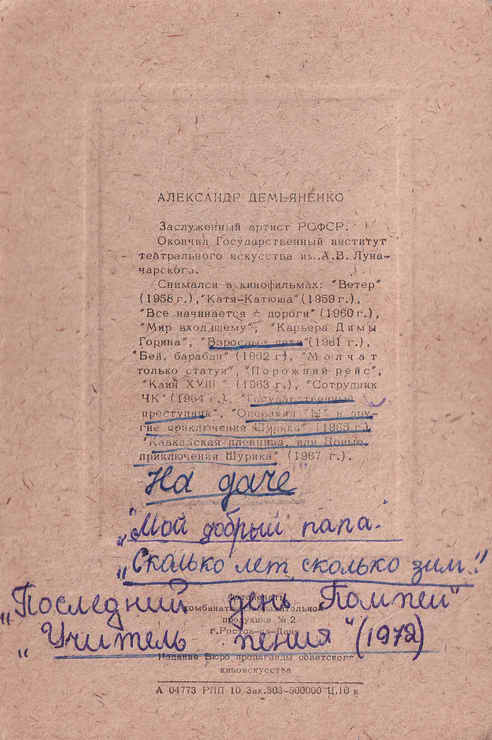 АЛЕКСАНДР ДЕМЬЯНЕНКО
Заслуженный артист РСФСР.
Окончил Государственный институт
театрального искусства им. А.В. Луна-
чарского.
Снимался в кинофильмах: "Ветер"
(1958 г.), "Катя-Катюша" (1959 г.),
"Все начинается с дороги" (1960 г.),
"Мир входящему", "Карьера Димы
Горина", "Взрослые дети" (1961 г.),
"Бей, барабан" (1962 г.), "Молчат
только статуи", "Порожний рейс",
"Каин XVIII" (1963 г.), "Сотрудник
ЧК" (1964 г.), "Государственный
преступник", "Операция "Ы" и дру-
гие приключения Шурика" (1965 г.),
"Кавказская пленница, или Новые
приключения Шурика" (1967 г.).
На даче"
"Мой добрый папа."
"Сколько лет, сколько зим."
"Последний день Помпеи"
комбината
продукции № 2
г. Ростов-на-Дону
"Учитель пения" (1972)
Издание Бюро пропаганды советского
киноискусства
А 04773 РПП 10 Зак.303-500000 Ц.10 к